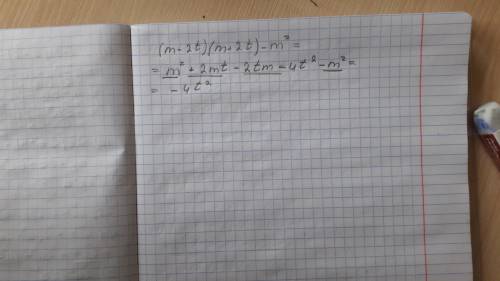 (m-2t)(m+2t)-m²=
= m² + 2mt - 2tm - 4t² - m² =
= -4t²